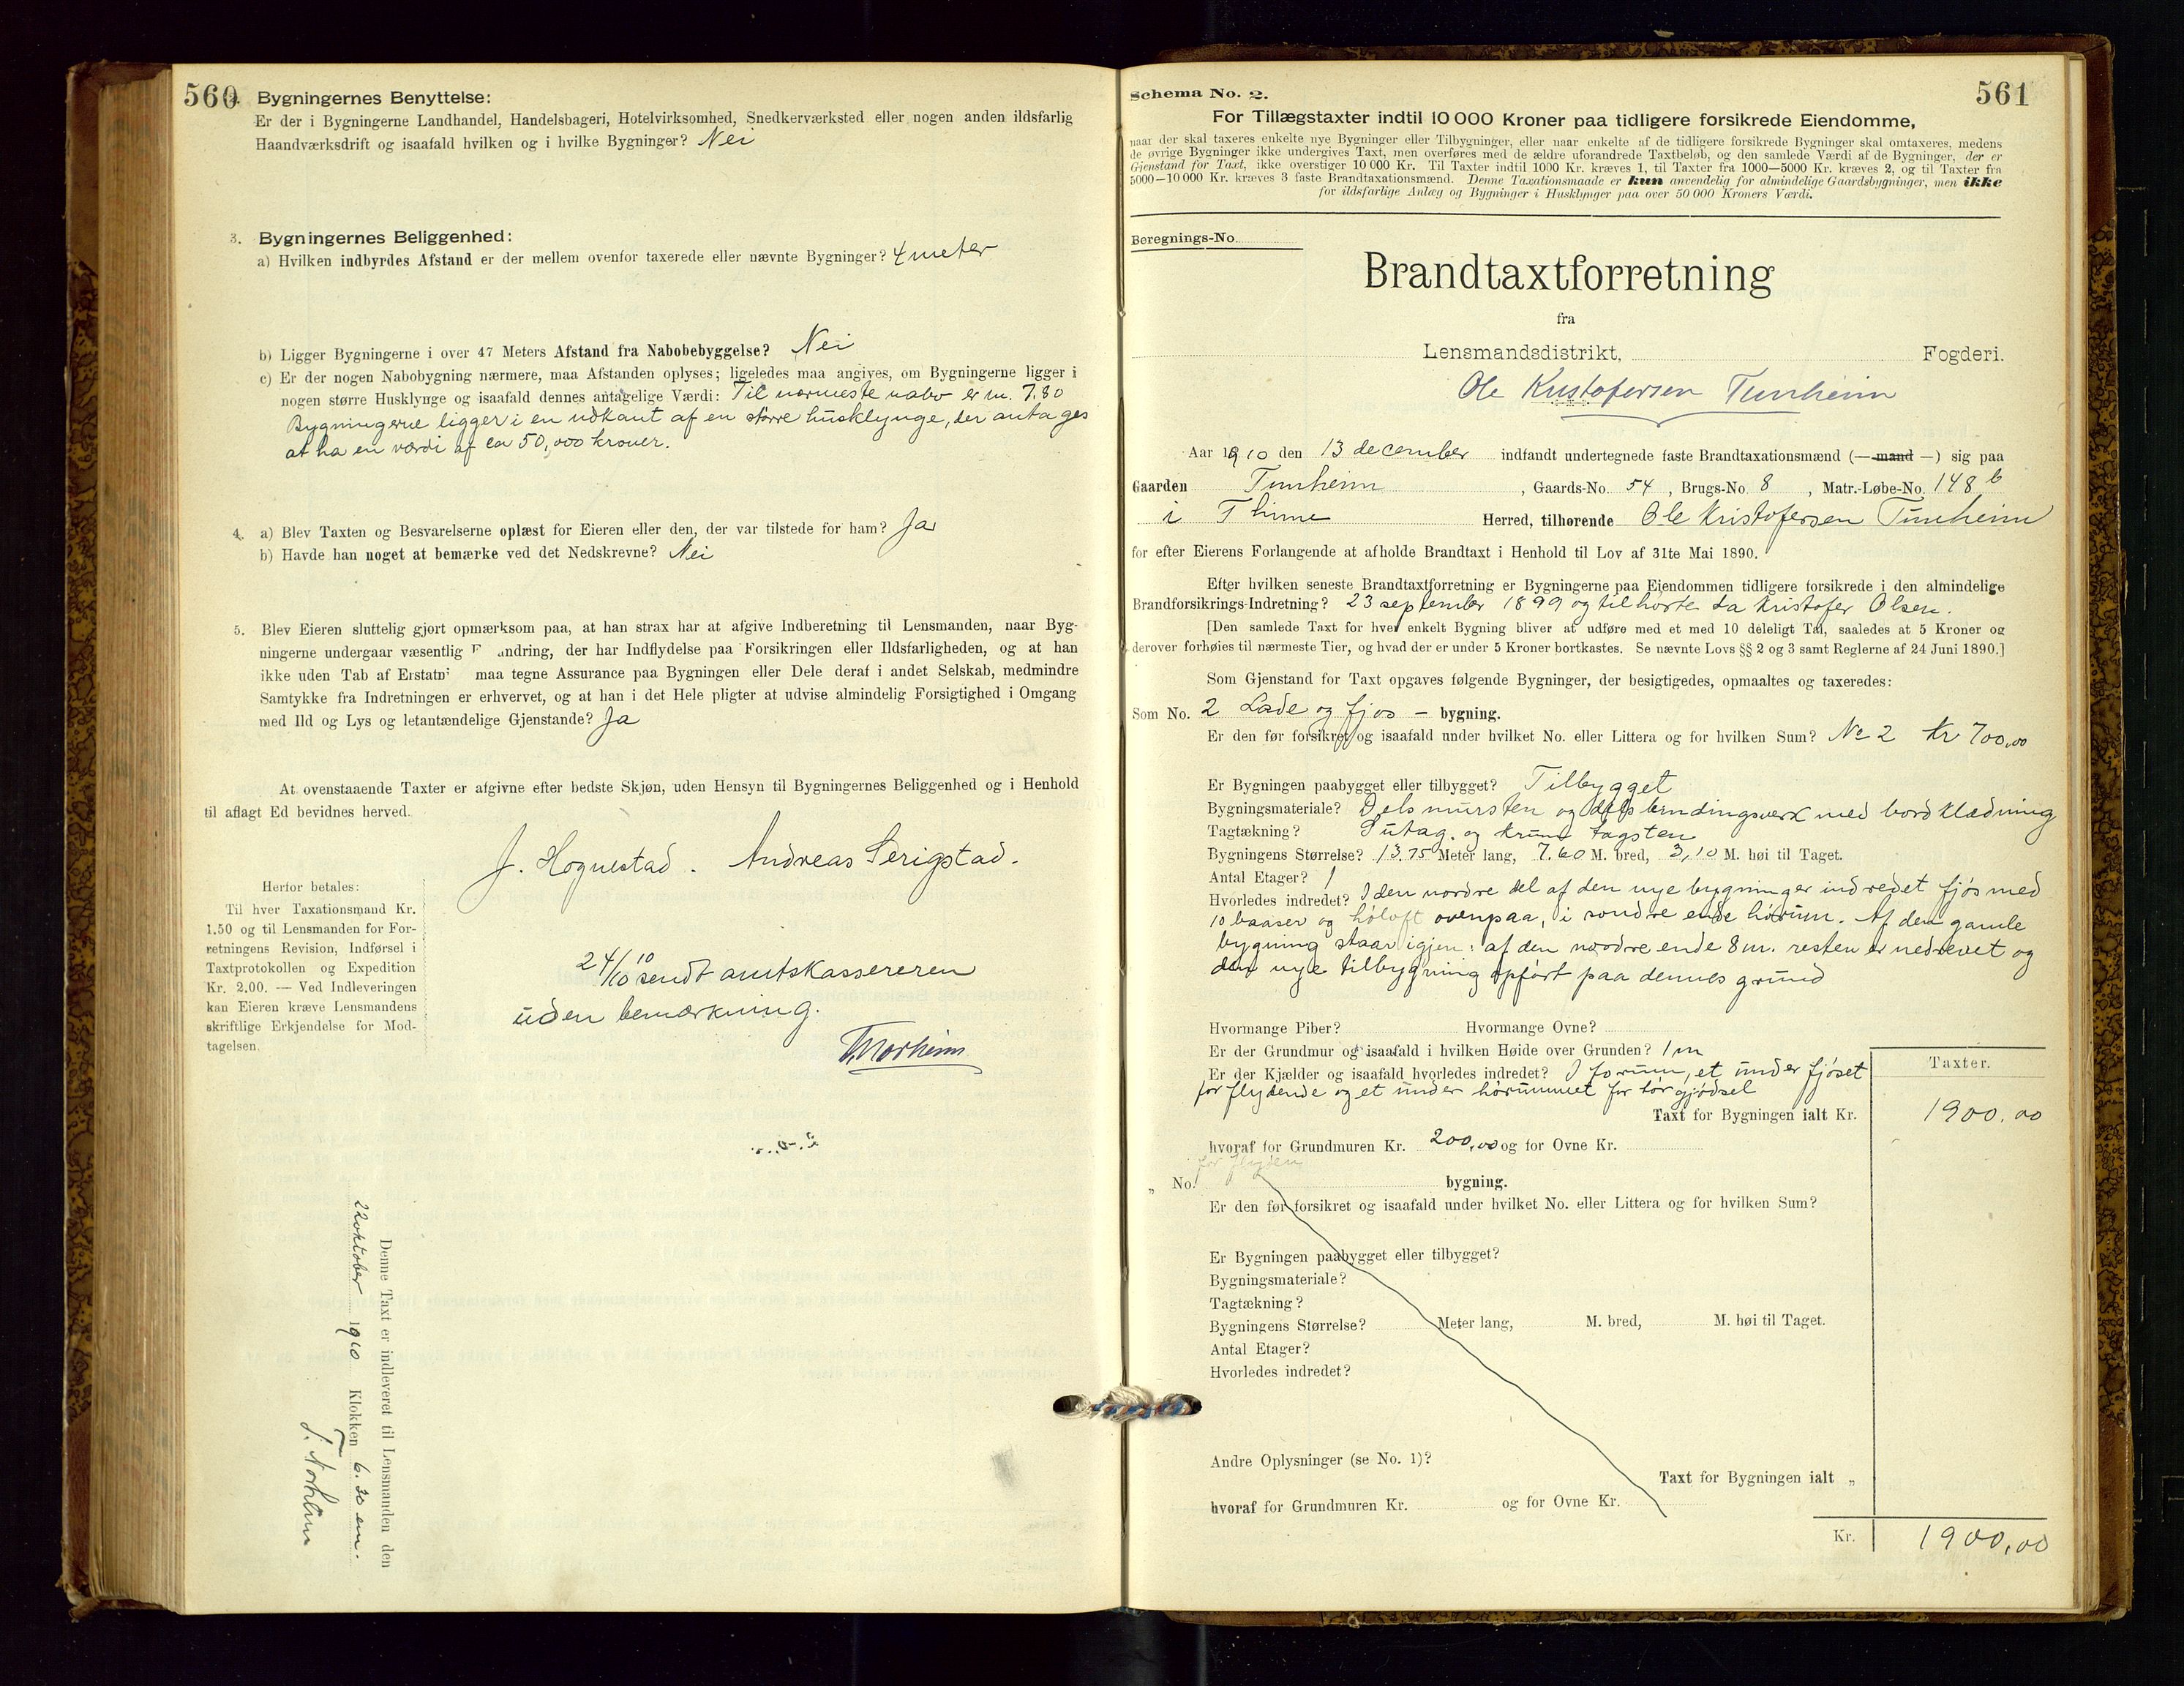 560
2. Bygningernes Benyttelse:
Er der i Bygningerne Landhandel, Handelsbageri, Hotelvirksomhed, Snedkerværksted eller nogen anden ildsfarlig
Haandværksdrift og isaafald hvilken og i hvilke Bygninger? Nei
3. Bygningernes Beliggenhed:
a) Hvilken indbyrdes Afstand er der mellem ovenfor taxerede eller nævnte Bygninger? 4 meter
b) Ligger Bygningerne i over 47 Meters Afstand fra Nabobebyggelse? Nei
c) Er der nogen Nabobygning nærmere, maa Afstanden oplyses; ligeledes maa angives, om Bygningerne ligger i
nogen større Husklynge og isaafald dennes antagelige Værdi: Til nærmeste nabo er m. 7,80
Bygningerne ligger i en udkant af en større husklynge, der antages
at ha en værdi af ca 50,000 kroner.
4. a) Blev Taxten og Besvarelserne oplæst for Eieren eller den, der var tilstede for ham? Ja
b) Havde han noget at bemærke ved det Nedskrevne? Nei
5. Blev Eieren sluttelig gjort opmærksom paa, at han strax har at afgive Indberetning til Lensmanden, naar Byg-
ningerne undergaar væsentlig F andring, der har Indflydelse paa Forsikringen eller Ildsfarligheden, og at han
ikke uden Tab af Erstatn maa tegne Assurance paa Bygningen eller Dele deraf i andet Selskab, medmindre
Samtykke fra Indretningen er erhvervet, og at han i det Hele pligter at udvise almindelig Forsigtighed i Omgang
med Ild og Lys og letantændelige Gjenstande? Ja
At ovenstaaende Taxter er afgivne efter bedste Skjøn, uden Hensyn til Bygningernes Beliggenhed og i Henhold
til aflagt Ed bevidnes herved.
J. Hognestad. Andreas Serigstad.
Herfor betales:
Til hver Taxationsmand Kr.
1.50 og til Lensmanden for For-
retningens Revision, Indførsel i
Taxtprotokollen og Expedition
Kr. 2,00. — Ved Indleveringen
kan Eieren kræve Lensmandens
skriftlige Erkjendelse for Mod-
tagelsen.
24/10 10 sendt amtskassereren
uden bemærkning.
T. Norheim
Denne Taxt er indleveret til Lensmanden den
22 oktober 1910 Klokken 6.30 em.
T. Norheim
561
Schema No. 2.
For Tillægstaxter indtil 10 000 Kroner paa tidligere forsikrede Eiendomme,
naar der skal taxeres enkelte nye Bygninger eller Tilbygninger, eller naar enkelte af de tidligere forsikrede Bygninger skal omtaxeres, medens
de øvrige Bygninger ikke undergives Taxt, men overføres med de ældre uforandrede Taxtbeløb, og den samlede Værdi af de Bygninger, der er
Gjenstand for Taxt, ikke overstiger 10 000 Kr. Til Taxter indtil 1000 Kr. kræves 1, til Taxter fra 1000—5000 Kr. kræves 2, og til Taxter fra
5000—10 000 Kr. kræves 3 faste Brandtaxationsmænd. Denne Taxationsmaade er kun anvendelig for almindelige Gaardsbygninger, men ikke
for ildsfarlige Anlæg og Bygninger i Husklynger paa over 50 000 Kroners Værdi.
Beregnings-No.
Brandtaxtforretning
fra
Lensmandsdistrikt, Fogderi.
Ole Kristofersen Tunheim
Aar 1910 den 13 december indfandt undertegnede faste Brandtaxationsmænd (— mand —) sig paa
Gaarden Tunheim, Gaards-No. 54, Brugs-No. 8, Matr.-Løbe-No. 148 b
i Thime Herred, tilhørende Ole Kristofersen Tunheim
for efter Eierens Forlangende at afholde Brandtaxt i Henhold til Lov af 31te Mai 1890.
Efter hvilken seneste Brandtaxtforretning er Bygningerne paa Eiendommen tidligere forsikrede i den almindelige
Brandforsikrings-Indretning? 23 september 1899 og tilhørte da Kristofer Olsen.
[Den samlede Taxt for hver enkelt Bygning bliver at udføre med et med 10 deleligt Tal, saaledes at 5 Kroner og
derover forhøies til nærmeste Tier, og hvad der er under 5 Kroner bortkastes. Se nævnte Lovs §§ 2 og 3 samt Reglerne af 24 Juni 1890.]
Som Gjenstand for Taxt opgaves følgende Bygninger, der besigtigedes, opmaaltes og taxeredes:
Som No. 2 Lade og fjos - bygning.
Er den før forsikret og isaafald under hvilket No. eller Littera og for hvilken Sum? No 2 Kr 700,00
Er Bygningen paabygget eller tilbygget? Tilbygget
Bygningsmateriale? Dels mursten og dels bindingsverk med bordklædning
Tagtækning? Sutag. og krum tagsten
Bygningens Størrelse? 13.75 Meter lang, 7.60 M. bred, 3,10 M. høi til Taget.
Antal Etager? 1
Hvorledes indredet? I den nordre del af den nye bygning er indredet fjøs med
10 baaser og høloft ovenpaa, i søndre ende hørum. Af den gamle
bygning staar igjen af den nordre ende 8 m. resten er nedrevet og
den nye tilbygning opført paa dennes grund
Hvormange Piber? Hvormange Ovne?
Er der Grundmur og isaafald i hvilken Høide over Grunden? 1 m
Er der Kjælder og isaafald hvorledes indredet? I forrum, et under fjøset
for flydende og et under hørummet for tør gjødsel
Taxter.
Taxt for Bygningen ialt Kr. 1900.00
hvoraf for Grundmuren Kr. 200,00 og for Ovne Kr.
for flyden
„ No. bygning.
Er den før forsikret og isaafald under hvilket No. eller Littera og for hvilken Sum?
Er Bygningen paabygget eller tilbygget?
Bygningsmateriale?
Tagtækning?
Bygningens Størrelse? Meter lang, M. bred, M. høi til Taget.
Antal Etager?
Hvorledes indredet?
Andre Oplysninger (se No. 1)?
Taxt for Bygningen ialt „
hvoraf for Grundmuren Kr. og for Ovne Kr.
Kr. 1900,00